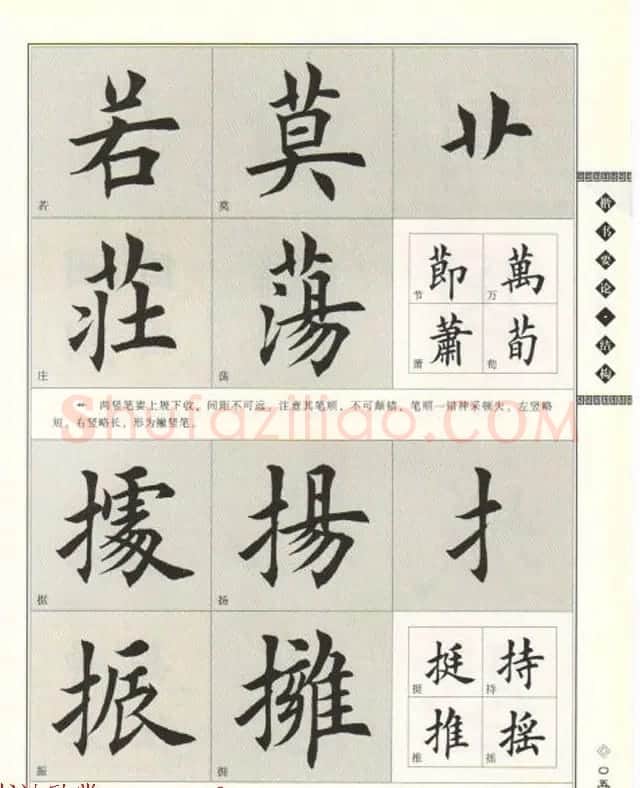 若 莫 艹
若 莫
莊 蕩 節 萬
节 万
蕭 荀
萧 荀
庄 荡
艹 两竖笔要上展下收，间距不可远。注意其笔顺，不可颠错，笔顺一错神采顿失。左竖略
短，右竖略长，形为撇竖笔。
據 揚 扌
据 扬
振 擁 挺 持
挺 持
推 摇
推 摇
振 拥
楷书要论·结构
〇五
Shufaziliao.COM